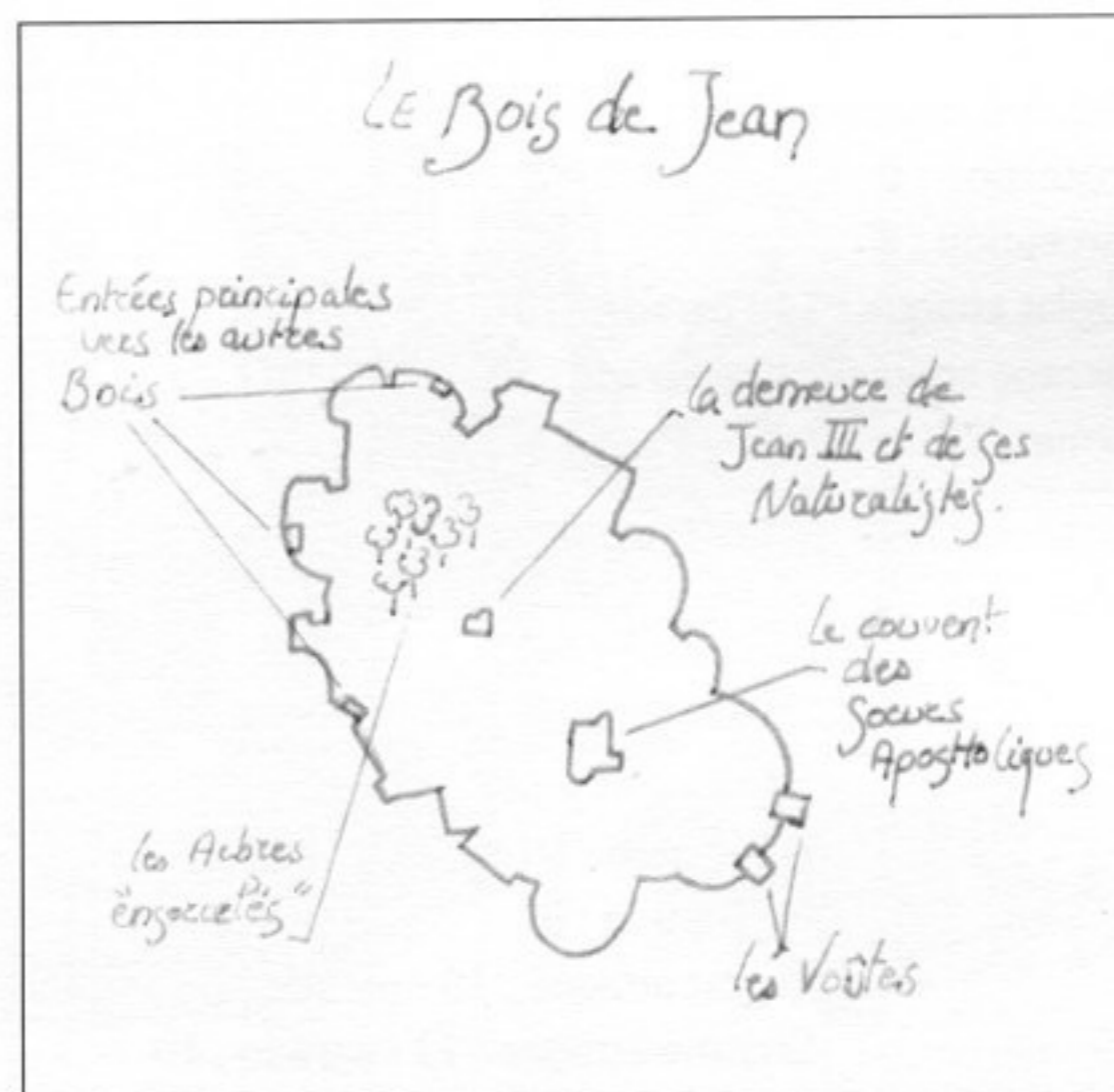 LE Bois de Jean
Entrées principales
vers les autres
Bois
la demeure de
Jean III et de ses
Naturalistes.
Le couvent
des
Soeurs
Apostholiques
les Arbres
"ensorcelés"
les Voûtes